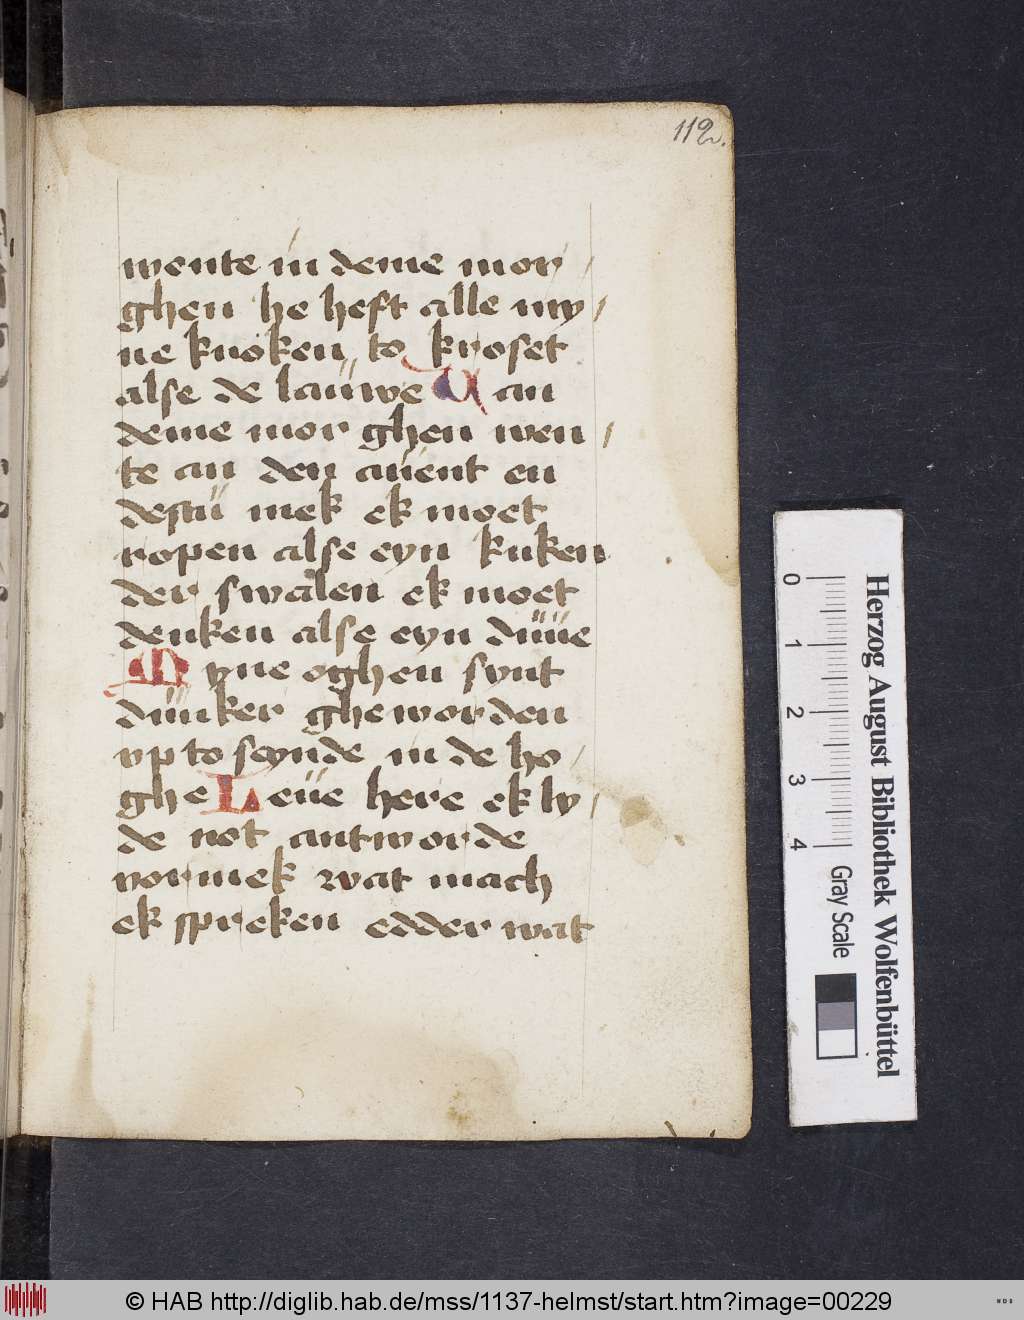 112.
wente in deme mor/
ghen he heft alle my/
ne knoken to kroset
alse de lauwe U an
deme mor ghen wen/
te an den auent en
destu mek ek moet
ropen alse eyn kuken
der swalen ek moet
denken alse eyn duue
Myne oghen synt
dunker ghe worden
vp to seynde in de ho/
ghe Leue here ek ly/
de not antworde
vor mek wat mach
ek spreken edder wat
0 1 2 3 4
Herzog August Bibliothek Wolfenbüttel
Gray Scale
© HAB http://diglib.hab.de/mss/1137-helmst/start.htm?image=00229